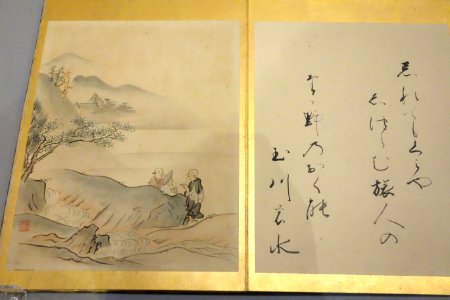 忘れてもくミや
しつらむ旅人の
高野乃おく能
玉川の水